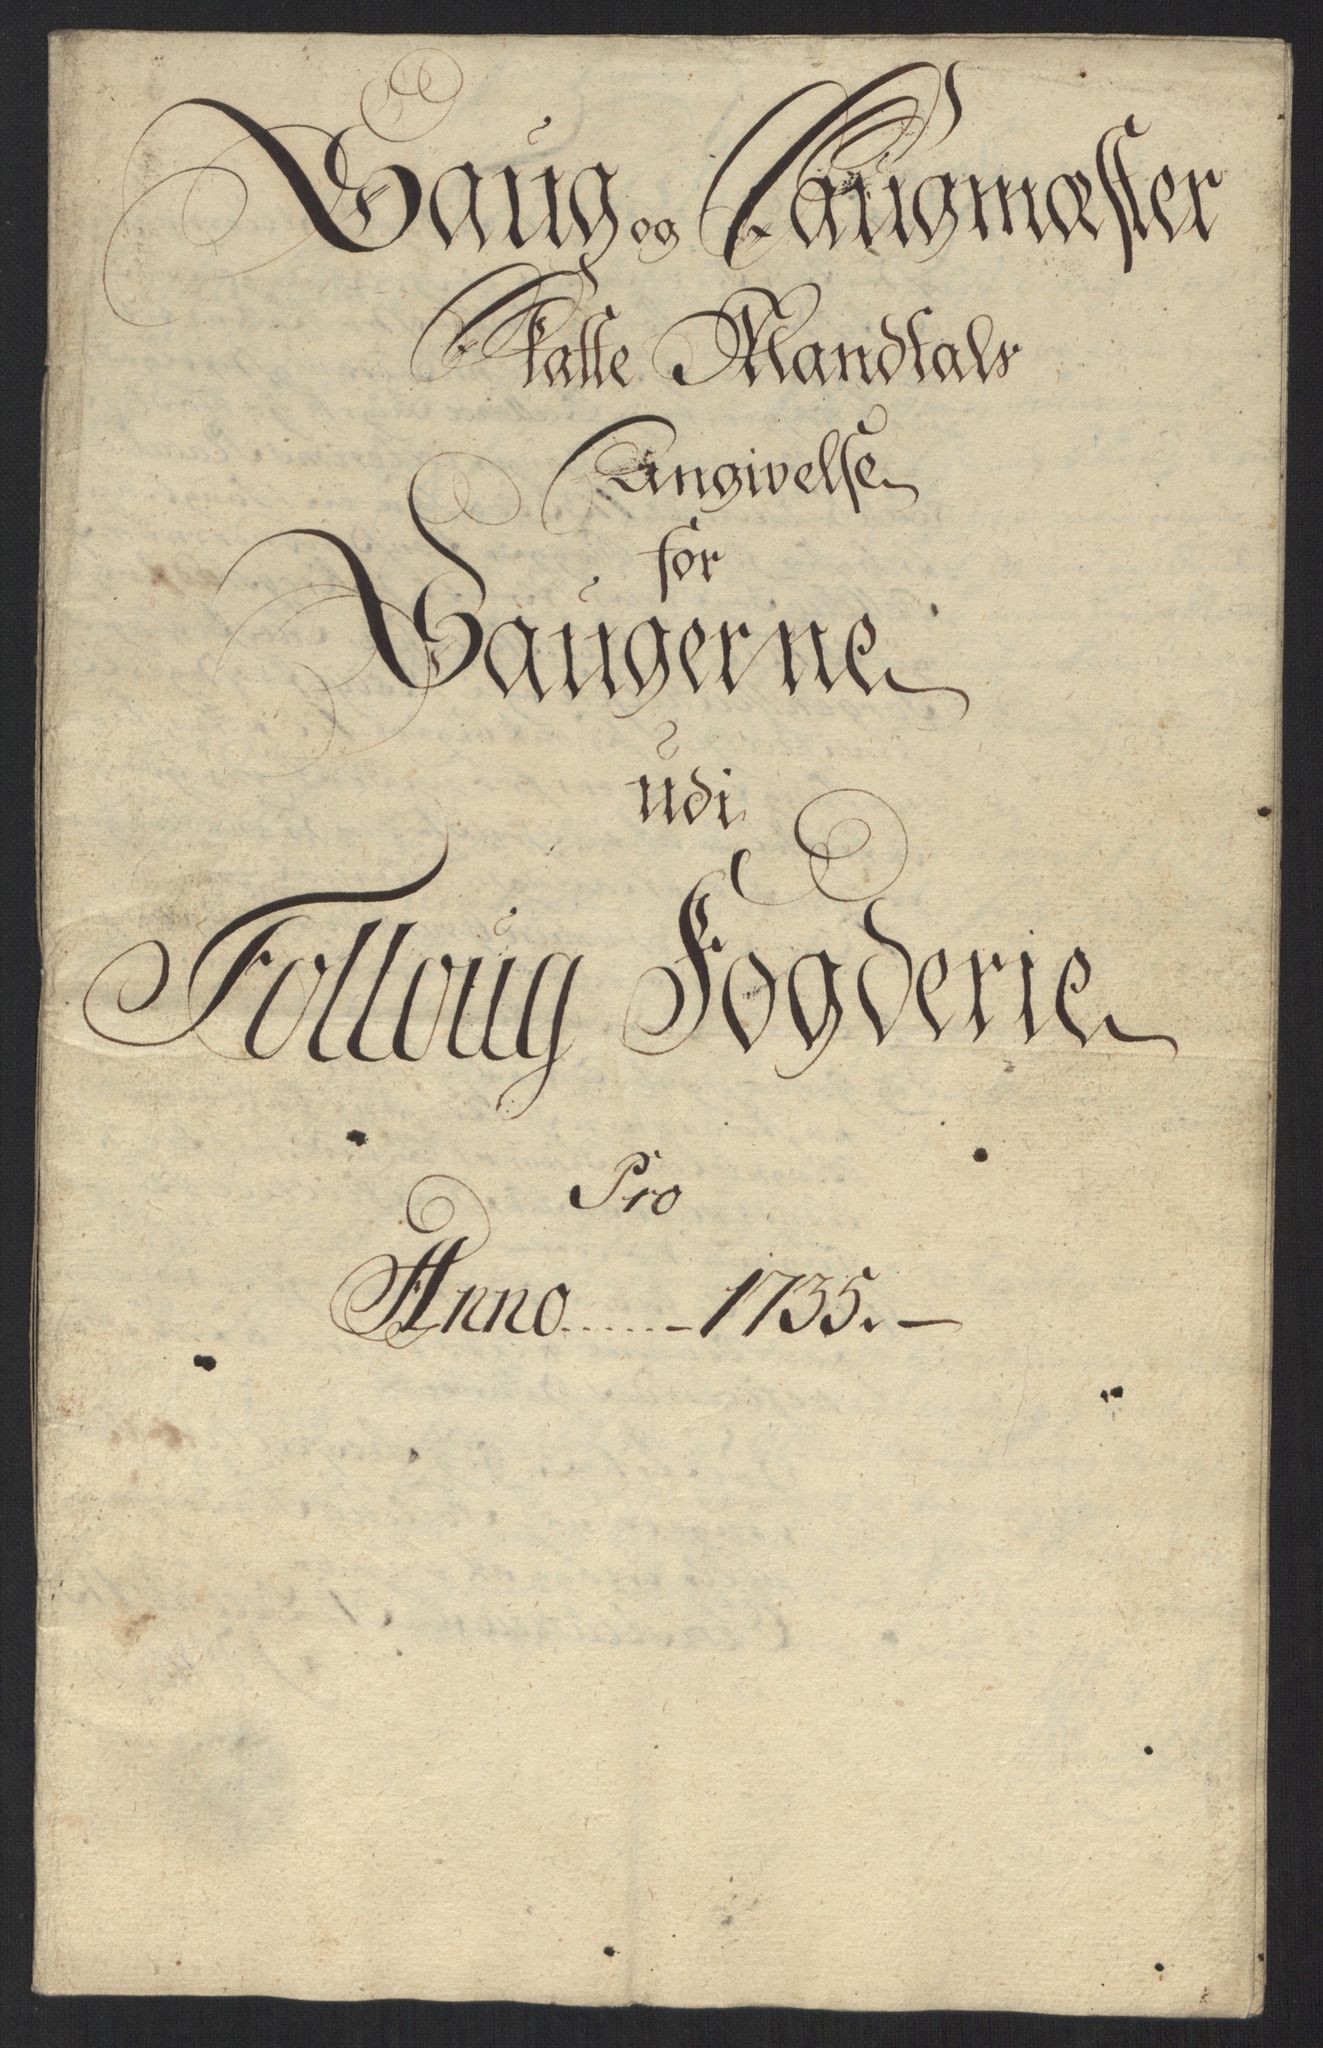 Saug og Saugmæster
Skatte Mandtals
Angivelse
for
Saugerne
udi
Folloug Fogderie
Pro
Anno ...... 1735. —